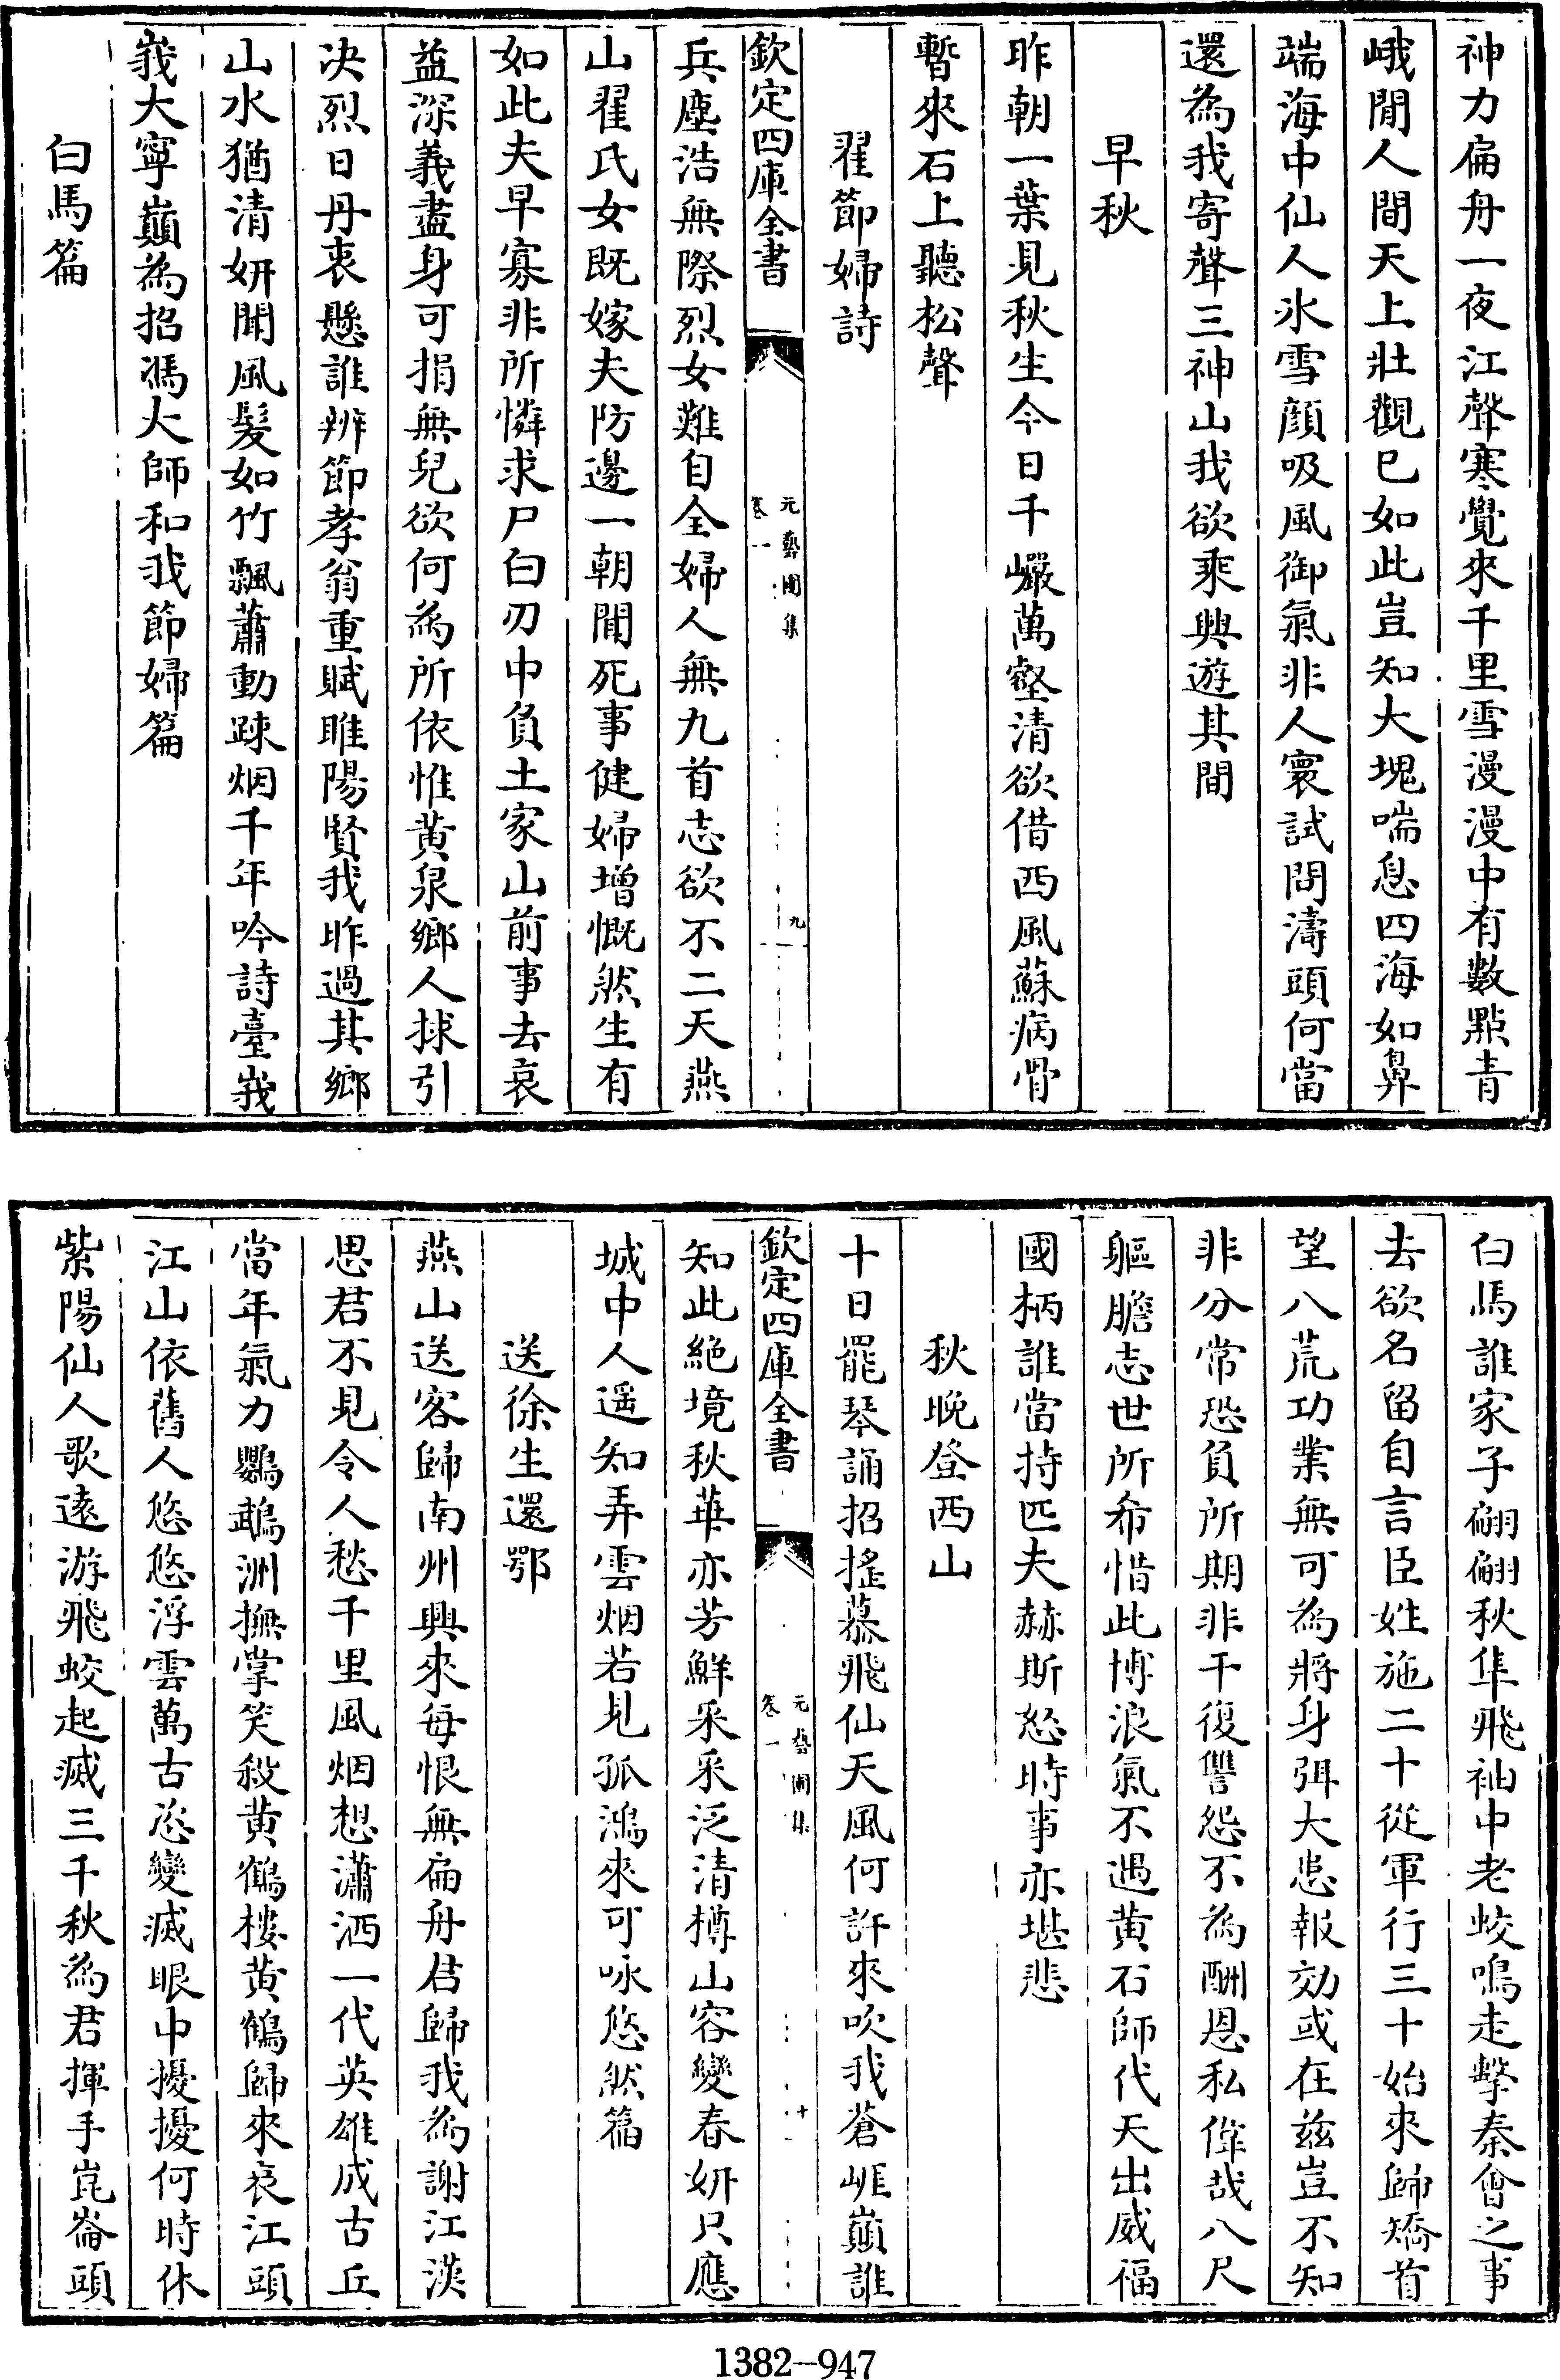 神力扁舟一夜江聲寒覺來千里雪漫漫中有數點青
峨閒人間天上壯觀已如此豈知大塊喘息四海如鼻
端海中仙人氷雪顔吸風御氣非人寰試問濤頭何當
還為我寄聲三神山我欲乘興遊其間
早秋
昨朝一葉見秋生今日千巖萬壑清欲借西風蘇病骨
暫來石上聽松聲
翟節婦詩
欽定四庫全書
元藝圃集
卷一
九
兵塵浩無際烈女難自全婦人無九首志欲不二天燕
山翟氏女既嫁夫防邊一朝聞死事健婦增慨然生有
如此夫早寡非所憐求尸白刃中負土家山前事去哀
益深義盡身可捐無兒欲何為所依惟黄泉鄉人捄引
决烈日丹衷懸誰辨節孝翁重賦睢陽賢我昨過其鄉
山水猶清妍聞風髮如竹飄蕭動疎烟千年吟詩臺峩
峩大寧巔為招馮大師和我節婦篇
白馬篇
白馬誰家子翩翩秋隼飛袖中老蛟鳴走擊秦會之事
去欲名留自言臣姓施二十從軍行三十始來歸矯首
望八荒功業無可為將身弭大患報効或在兹豈不知
非分常恐負所期非干復讐怨不為酬恩私偉哉八尺
軀膽志世所希惜此博浪氣不遇黄石師代天出威福
國柄誰當持匹夫赫斯怒時事亦堪悲
秋晚登西山
十日罷琴誦招搖慕飛仙天風何許來吹我蒼崕巔誰
欽定四庫全書
元藝圃集
卷一
十
知此絶境秋華亦芳鮮采采泛清樽山容變春妍只應
城中人遥知弄雲烟若見孤鴻來可咏悠然篇
送徐生還鄂
燕山送客歸南州興來每恨無扁舟君歸我為謝江漢
思君不見令人愁千里風烟想瀟洒一代英雄成古丘
當年氣力鸚鵡洲撫掌笑殺黄鶴樓黄鶴歸來哀江頭
江山依舊人悠悠浮雲萬古恣變滅眼中擾擾何時休
紫陽仙人歌遠游飛蛟起滅三千秋為君揮手崑崙頭
1382—947